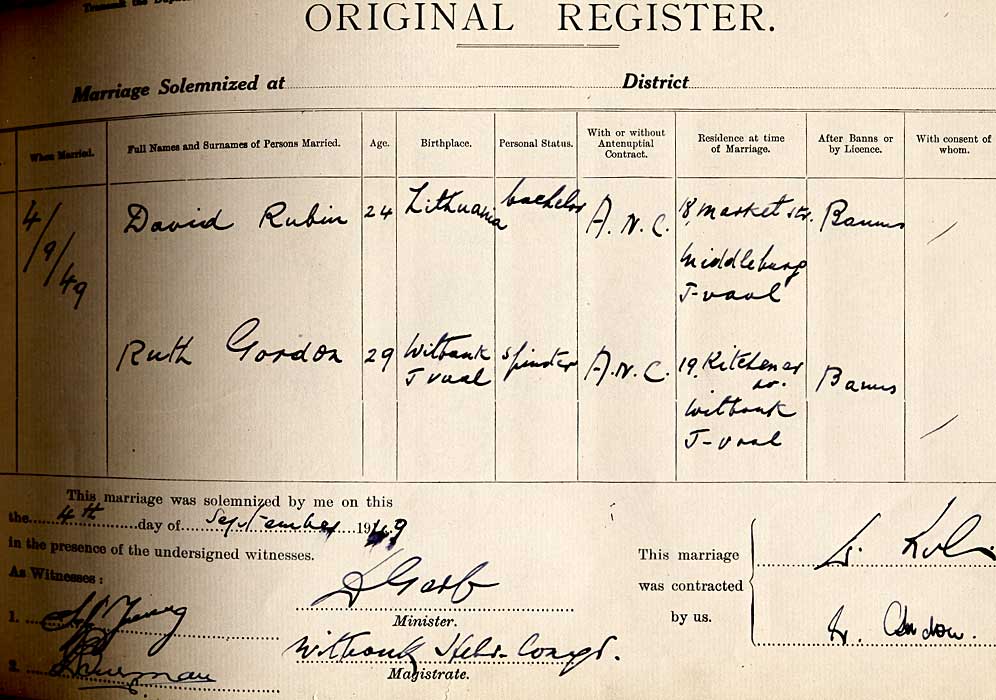 ORIGINAL REGISTER.
Marriage Solemnized at District
When Married. Full Names and Surnames of Persons Married. Age. Birthplace. Personal Status. With or without Antenuptial Contract. Residence at time of Marriage. After Banns or by Licence. With consent of whom.
4/9/49 David Rubin 24 Lithuania bachelor A.N.C. 18, Market str. Banns
Middleburg
T-vaal
Ruth Gordon 29 Witbank spinster A.N.C. 19, Kitchener Banns
Tvaal
Witbank
T-vaal
This marriage was solemnized by me on this
the 4th day of September 1949
in the presence of the undersigned witnesses.
As Witnesses:
This marriage
was contracted
by us.
1.
Minister.
Witbank Hebr. Congr.
2.
Magistrate.